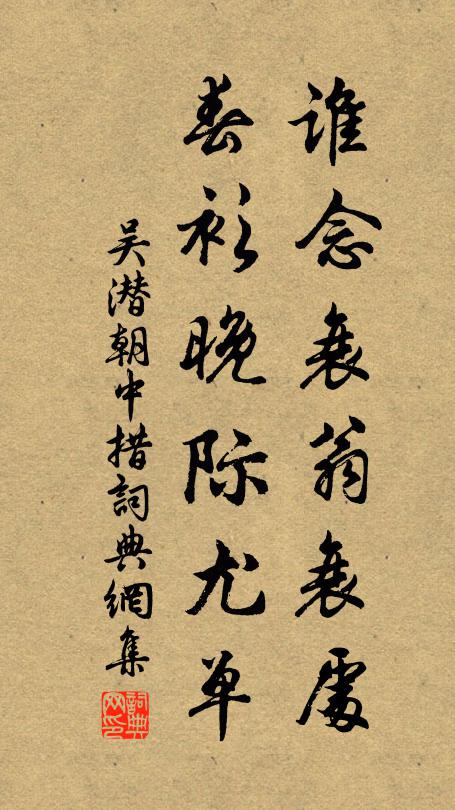 谁念衰翁衰处
春衫晚际尤单
吴潜朝中措詞典網集
詞典
网印